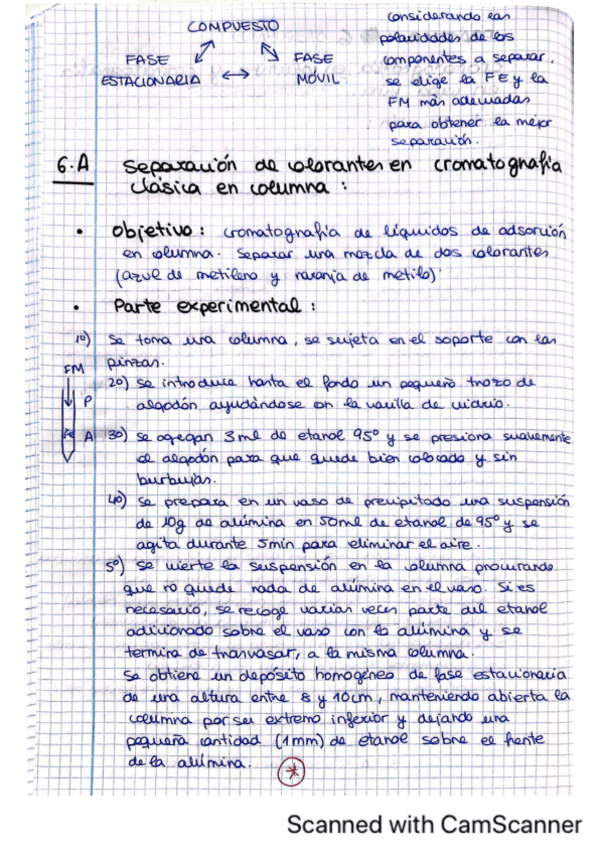 COMPUESTO
FASE ESTACIONARIA
FASE MÓVIL
considerando las
polaridades de los
componentes a separar,
se elige la FE y la
FM más adecuadas
para obtener la mejor
separación.
6.A Separación de colorantes en cromatografía
clásica en columna:
• Objetivo: cromatografía de líquidos de adsorción
en columna. Separar una mezcla de dos colorantes
(azul de metileno y naranja de metilo).
• Parte experimental:
1º) Se toma una columna, se sujeta en el soporte con las
pinzas.
FM
P
A
2º) Se introduce hasta el fondo un pequeño trozo de
algodón ayudándose con la varilla de vidrio.
3º) Se agregan 3ml de etanol 95º y se presiona suavemente
el algodón para que quede bien colocado y sin
burbujas.
4º) Se prepara en un vaso de precipitado una suspensión
de 10g de alúmina en 50ml de etanol de 95º y se
agita durante 5min para eliminar el aire.
5º) Se vierte la suspensión en la columna procurando
que no quede nada de alúmina en el vaso. Si es
necesario, se recoge varias veces parte del etanol
adicionado sobre el vaso con la alúmina y se
termina de tranvasar, a la misma columna.
Se obtiene un depósito homogéneo de fase estacionaria
de una altura entre 8 y 10cm, manteniendo abierta la
columna por su extremo inferior y dejando una
pequeña cantidad (1mm) de etanol sobre el frente
de la alúmina. *
Scanned with CamScanner